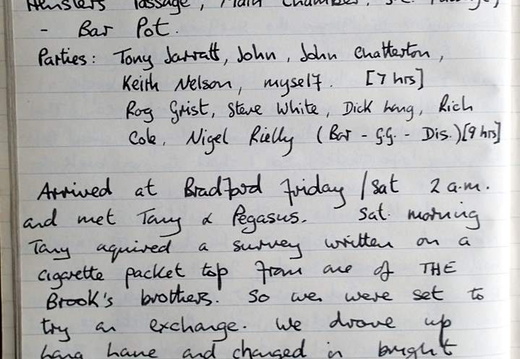 Hensler's Passage, Main Chamber, S.E. Passage,
- Bar Pot.
Parties: Tony Jarratt, John, John Chatterton,
Keith Nelson, myself. [7 hrs]
Rog Grist, Steve White, Dick Long, Rich
Cole, Nigel Rielly (Bar - G.G. - Dis.) [9 hrs]
Arrived at Bradford Friday / Sat 2 a.m.
and met Tony & Pegasus. Sat. morning
Tony aquired a survey written on a
cigarette packet top from one of THE
Brook's brothers. So we were set to
try an exchange. We drove up
Long Lane and changed in bright